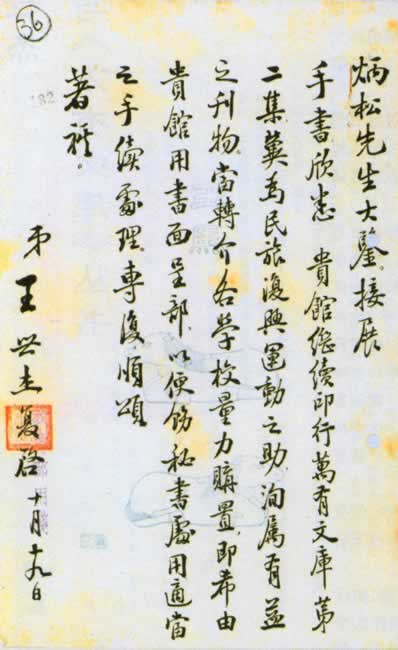 炳松先生大鑒。接展
手書欣悉 貴館繼續印行萬有文庫第
二集。冀為民族復興運動之助。洵屬有益
之刊物。當轉介各學校量力購置。即希由
貴館用書面呈部。以便飭秘書處用適當
之手續處理。專復順頌
著祺。
弟王世杰復啓 十月十九日
36
182